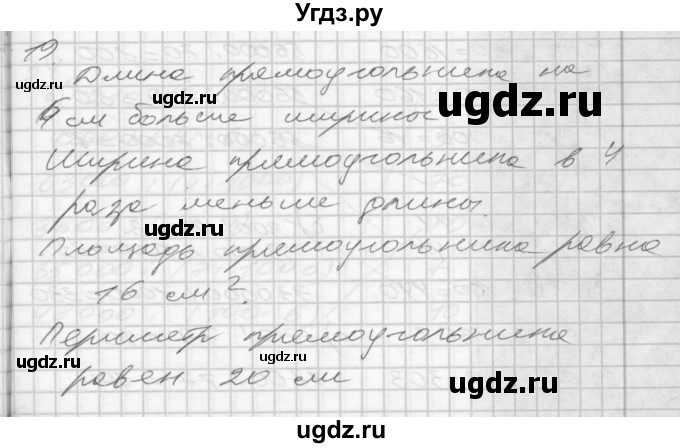 Угдз.ру
19
Длина прямоугольника на
см больше ширины
Ширина прямоугольника в 4
раза меньше длины
Площадь прямоугольника равна
16 см²
Периметр прямоугольника
равен 20 см
ugdz.ru
ugdz.ru
ugdz.ru
ugdz.ru
ugdz.ru
ugdz.ru
ugdz.ru
ugdz.ru
ugdz.ru
Угдз.ру